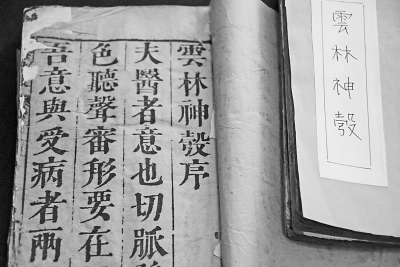 雲林神彀序
夫醫者意也切脈
色聽聲審形要在
吾意與愛病者兩
雲林神彀